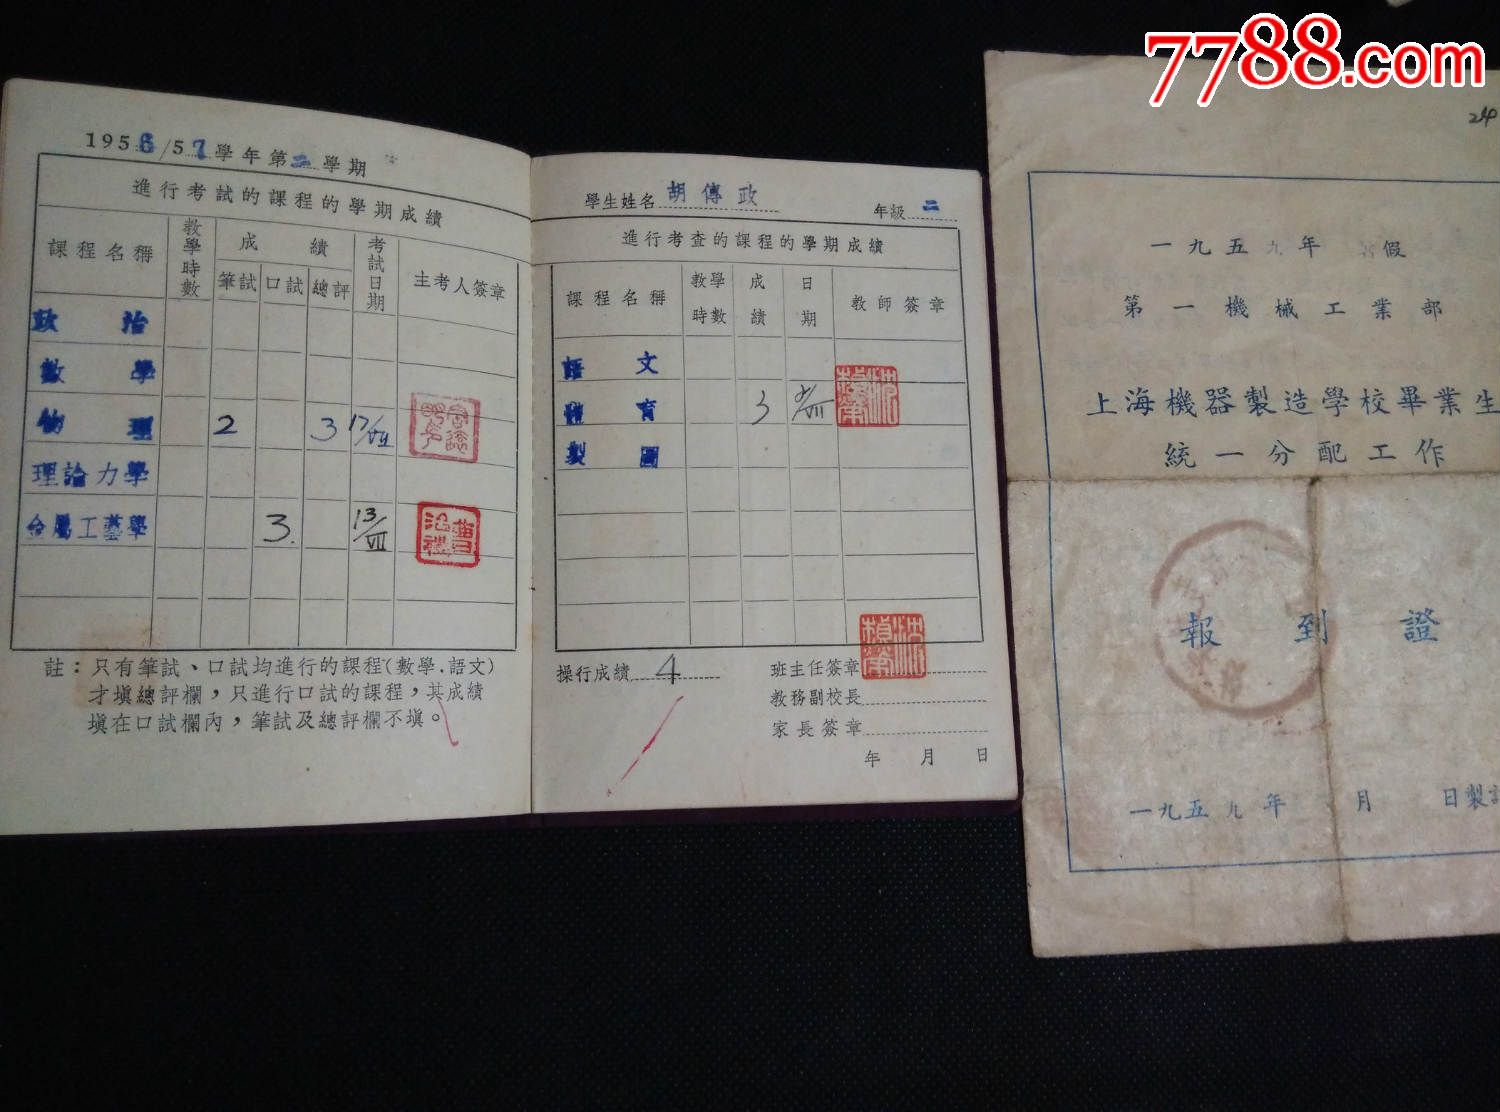 7788.com
1956/57學年第二學期
進行考試的課程的學期成績
課程名稱 教學時數 成績 考試日期 主考人簽章
筆試 口試 總評
政治
數學
物理 2 3 17/VII
理論力學
金屬工藝學 3. 13/VII
註：只有筆試、口試均進行的課程(數學.語文)
才填總評欄，只進行口試的課程，其成績
填在口試欄內，筆試及總評欄不填。
學生姓名 胡傳政 年級 二
進行考查的課程的學期成績
課程名稱 教學時數 成績 日期 教師簽章
語文
體育 3
製圖
操行成績 4 班主任簽章
教務副校長
家長簽章
年 月 日
24
一九五九年 暑假
第一機械工業部
上海機器製造學校畢業生
統一分配工作
報到證
一九五九年 月 日製